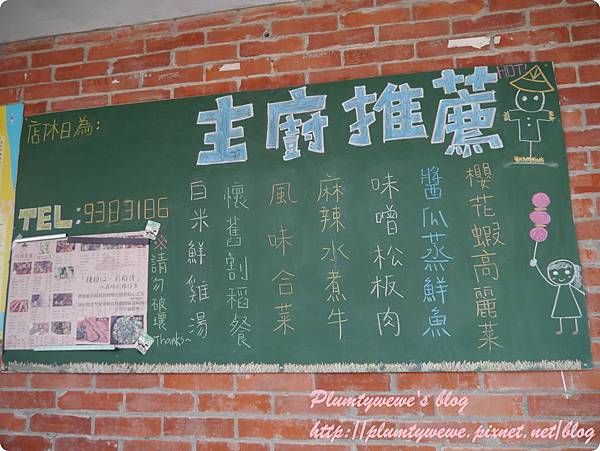 主廚推薦
HOT!
櫻花蝦高麗菜
醬瓜蒸鮮魚
味噌松板肉
麻辣水煮牛
風味合菜
懷舊割稻餐
白米鮮雞湯
店休日為:
TEL:9383186
※請勿破壞
Thanks~
Plumtywewe's blog
http://plumtywewe.pixnet.net/blog